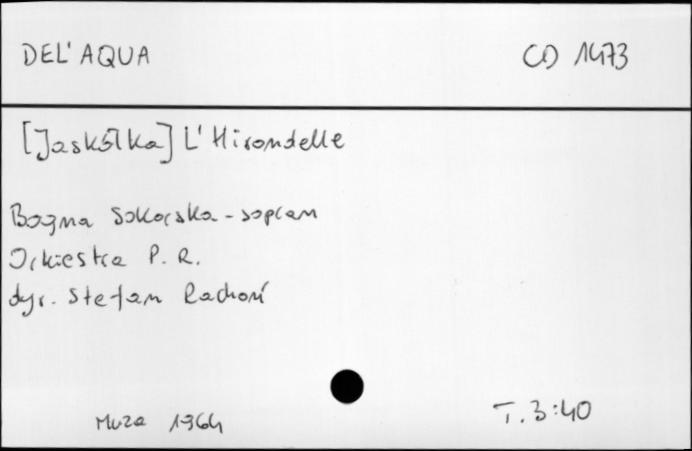 DEL' AQUA CD 1473
[Jaskółka] L' Hirondelle
Bogna Sokorska - sopran
Orkiestra P. R.
dyr. Stefan Rachoń
Muza 1964 T. 3:40